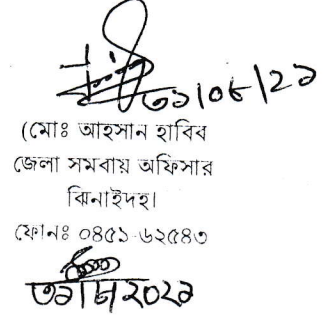 ৩১/০৮/২১
(মোঃ আহসান হাবিব
জেলা সমবায় অফিসার
ঝিনাইদহ।
ফোনঃ ০৪৫১-৬২৫৪৩
৩১/৮/২০২১